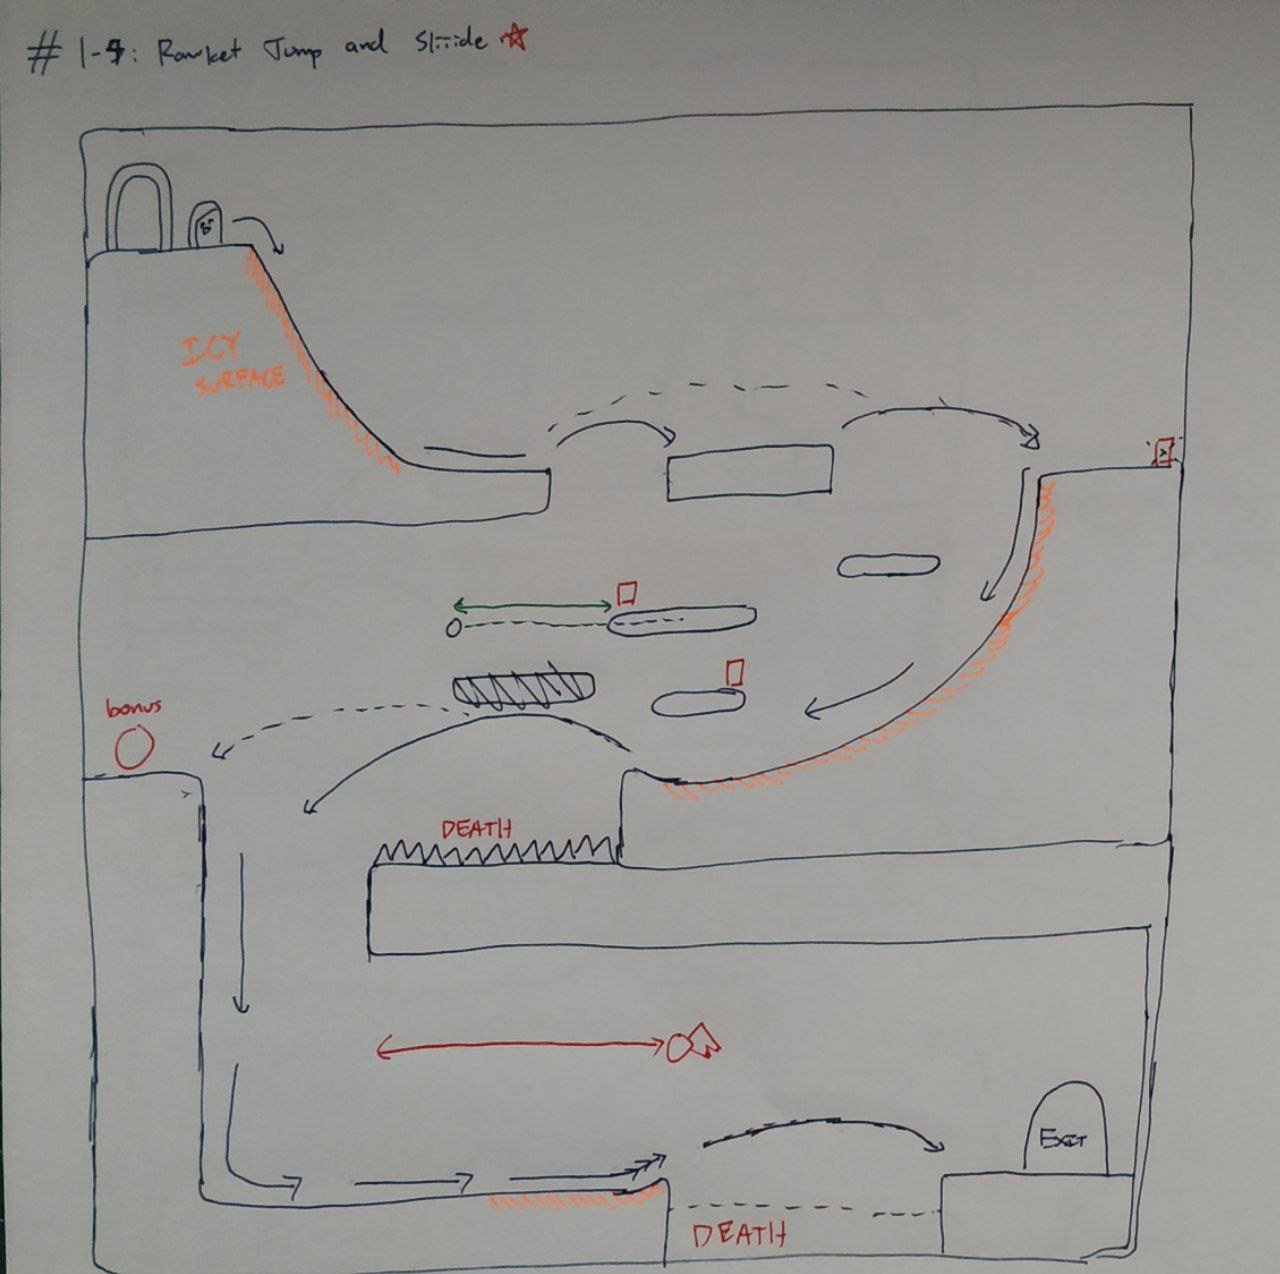 # 1-4: Rocket Jump and Sliiide
ICY
SURFACE
bonus
DEATH
EXIT
DEATH